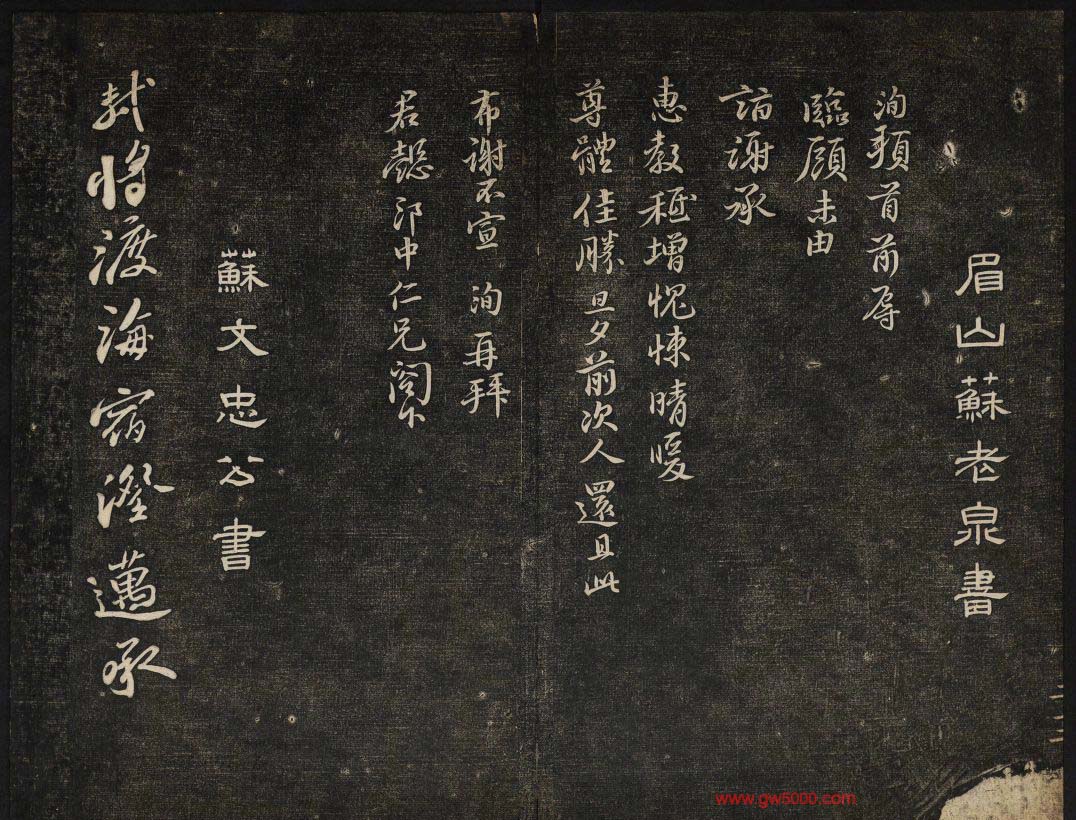 眉山蘇老泉書
洵頓首前辱
臨顧未由
詣謝承
惠教秪增愧悚晴暖
尊體佳勝旦夕前次人還且此
布謝不宣 洵再拜
君懿郎中仁兄閤下
蘇文忠公書
軾將渡海宿澄邁承
www.gw5000.com